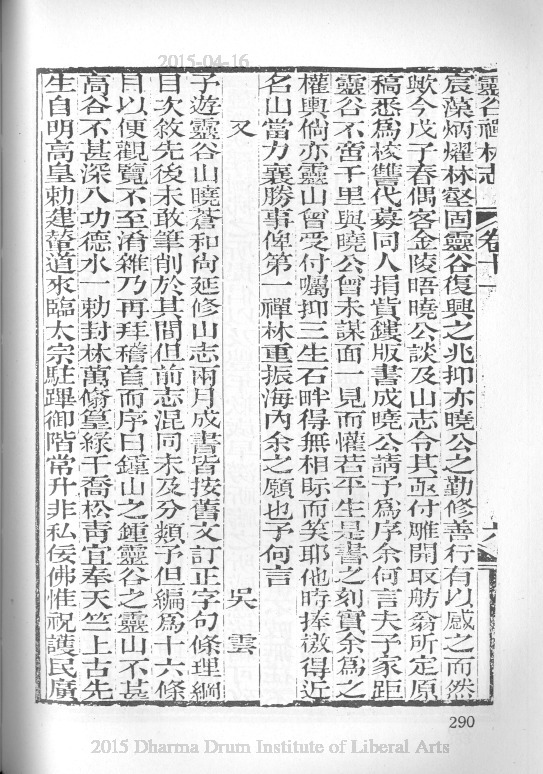 2015-04-16
靈谷禪林志 卷十一 六
宸藻炳燿林壑固靈谷復興之兆抑亦曉公之勤修善行有以感之而然
歟今戊子春偶客金陵晤曉公談及山志令其亟付雕開取舫翁所定原
稿悉為校讐代募同人捐貲鏤版書成曉公請予為序余何言夫予家距
靈谷不啻千里與曉公曾未謀面一見而懽若平生是書之刻實余為之
權輿倘亦靈山曾受付囑抑三生石畔得無相眎而笑耶他時捧檄得近
名山當力襄勝事俾第一禪林重振海內余之願也予何言
又 吳雲
予遊靈谷山曉蒼和尙延修山志兩月成書皆按舊文訂正字句條理綱
目次敘先後未敢筆削於其間但前志混同未及分類予但編為十六條
目以便觀覽不至淆雜乃再拜稽首而序曰鍾山之鍾靈谷之靈山不甚
高谷不甚深八功德水一勅封林萬翛篁綠千喬松靑宜奉天竺上古先
生自明高皇勅建鼇道來臨太宗駐蹕御階常升非私佞佛惟祝護民廣
290
2015 Dharma Drum Institute of Liberal Arts